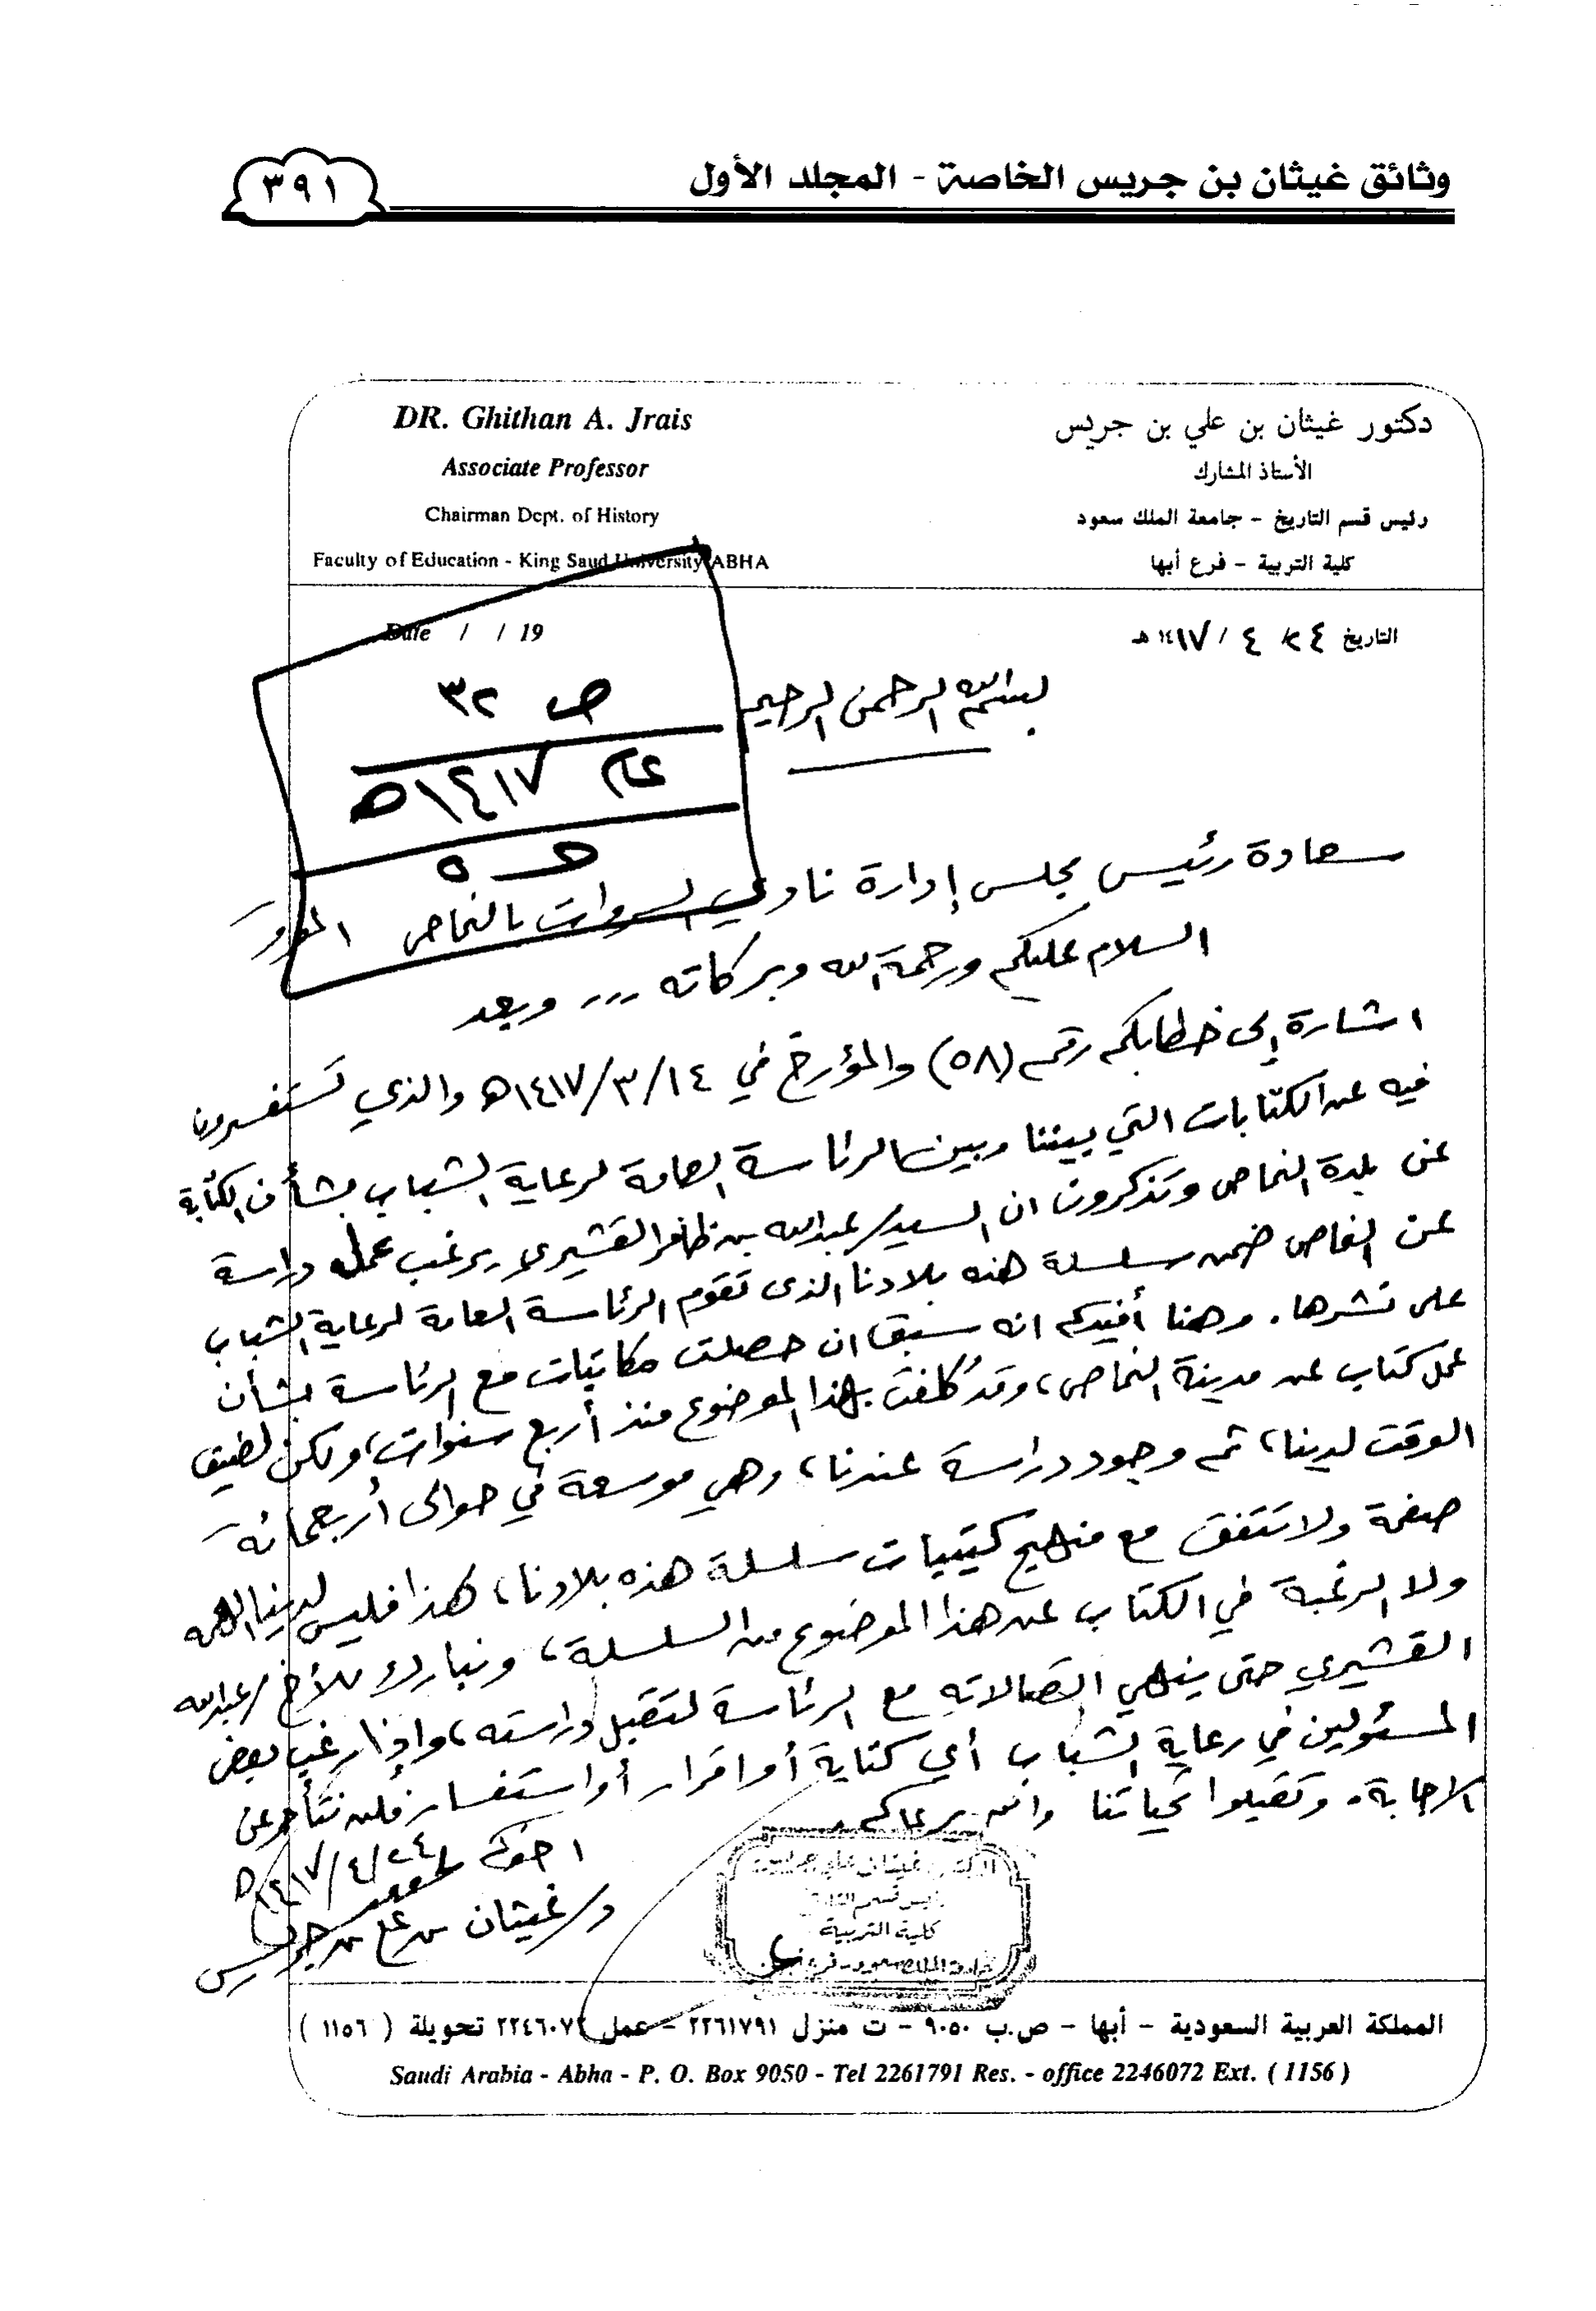 وثائق غيثان بن جريس الخاصة - المجلد الأول
٣٩١
DR. Ghithan A. Jrais
Associate Professor
Chairman Dept. of History
Faculty of Education - King Saud University ABHA
دكتور غيثان بن علي بن جريس
الأستاذ المشارك
رئيس قسم التاريخ - جامعة الملك سعود
كلية التربية - فرع أبها
التاريخ ٢٤ / ٤ / ١٤١٧ هـ
Date / / 19
بسم الله الرحمن الرحيم
ص ٣٢
عام ١٤١٧هـ
سعادة رئيس مجلس إدارة نادي السروات بالنماص الموقر
السلام عليكم ورحمة الله وبركاته ... وبعد
اشارة إلى خطابكم رقم (٥٨) والمؤرخ في ١٤١٧/٣/١٤هـ والذي تستفسرون
فيه عن الكتابات التي بيننا وبين الرئاسة العامة لرعاية الشباب بشأن الكتابة
عن بلدة النماص وتذكرون ان السيد/ عبدالله بن ظافر القشيري يرغب عمل دراسة
عن النماص ضمن سلسلة هذه بلادنا الذى تقوم الرئاسة العامة لرعاية الشباب
على نشرها. وهنا أفيدكم انه سبق ان حصلت مكاتبات مع الرئاسة بشأن
عمل كتاب عن مدينة النماص، وقد كلفت بهذا الموضوع منذ أربع سنوات، ولكن لضيق
الوقت لدينا، ثم وجود دراسة عندنا، وهي موسعة في حوالى أربعمائة
صفحة ولا تتفق مع منهج كتيبات سلسلة هذه بلادنا، لهذا فليس لدينا
ولا الرغبة في الكتاب عن هذا الموضوع من السلسلة، ونبارك للأخ/ عبدالله
القشيري حتى ينهي اتصالاته مع الرئاسة لتقبل دراسته، وإذا رغب بعض
المسئولين في رعاية الشباب أي كتابة أو اقرار أو استفسار فلن نتأخر عن
الاجابة. وتقبلوا تحياتنا والله يرعاكم.
اخوكم
١٤١٧/٤/٢٤هـ
د/ غيثان بن علي بن جريس
كلية التربية
المملكة العربية السعودية - أبها - ص.ب ٩٠٥٠ - ت منزل ٢٢٦١٧٩١ - عمل ٢٢٤٦٠٧٢ تحويلة ( ١١٥٦ )
Saudi Arabia - Abha - P. O. Box 9050 - Tel 2261791 Res. - office 2246072 Ext. ( 1156 )